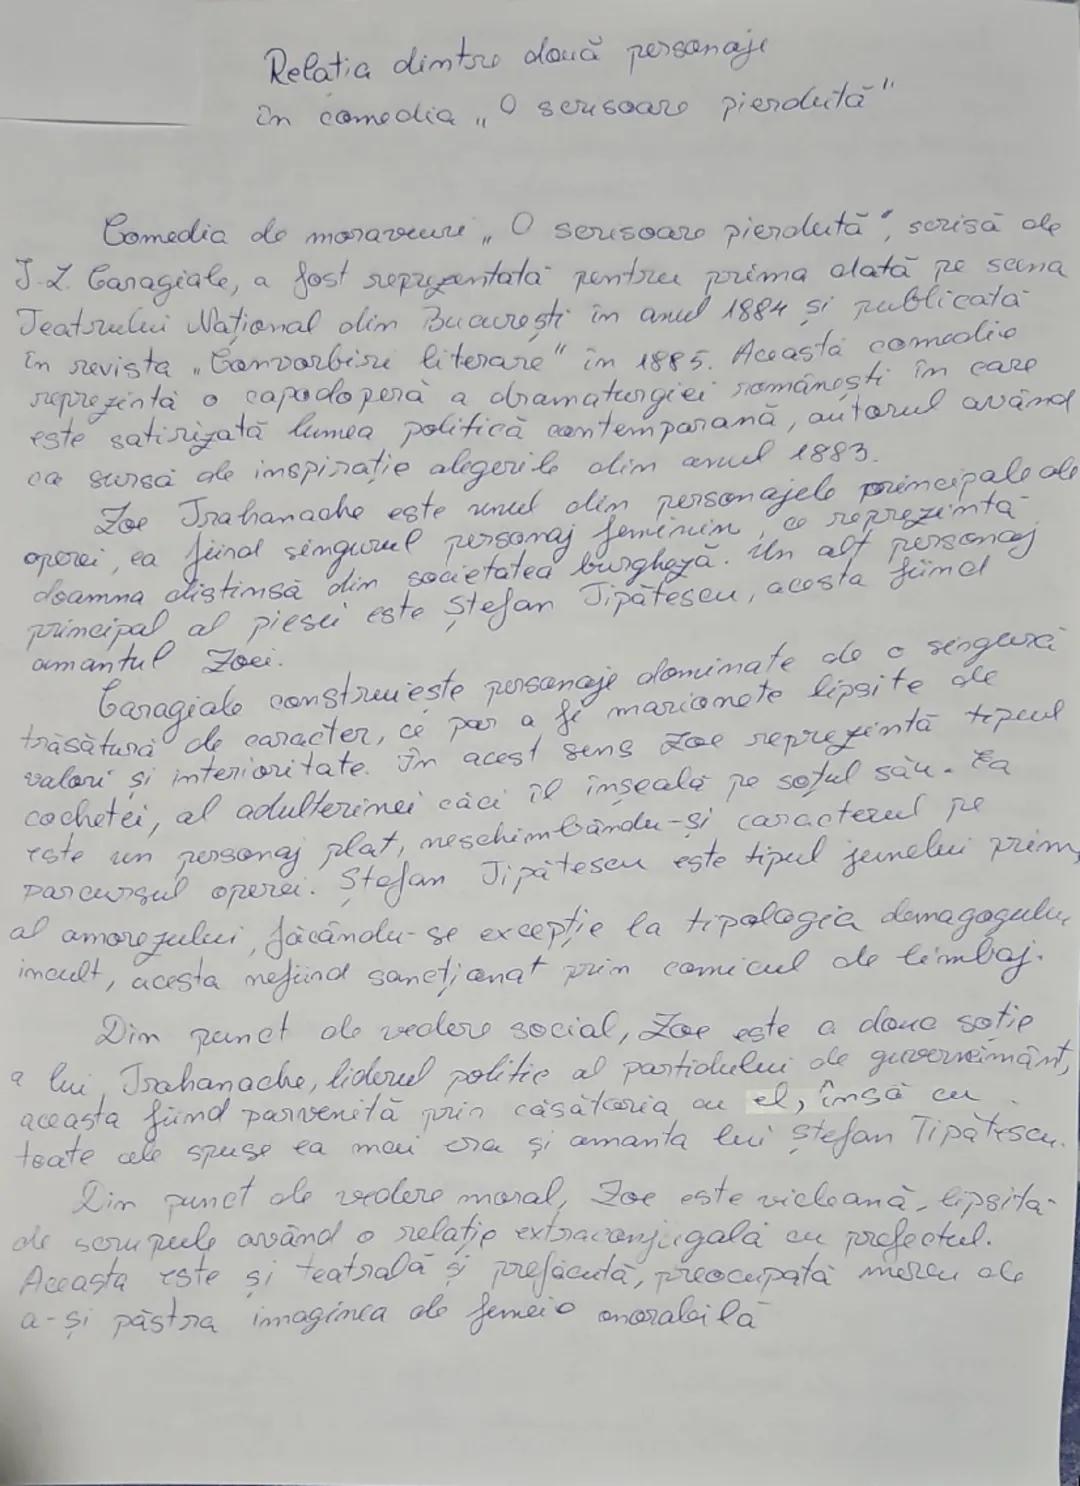 Relația dintre două personaje
în comedia „O scrisoare pierdută"
Comedia de moravuri „O scrisoare pierdută", scrisă de
I.L. Caragiale, a fost reprezentată pentru prima dată pe scena
Teatrului Național din București în anul 1884 și publicată
în revista „Convorbiri literare" în 1885. Această comedie
reprezintă o capodoperă a dramaturgiei românești în care
este satirizată lumea politică contemporană, autorul având
ca sursă de inspirație alegerile din anul 1883.
Zoe Trahanache este unul din personajele principale ale
operei, ea fiind singurul personaj feminin, ce reprezintă
doamna distinsă din societatea burgheză. Un alt personaj
principal al piesei este Ștefan Tipătescu, acesta fiind
amantul Zoei.
Caragiale construiește personaje dominate de o singură
trăsătură de caracter, ce par a fi marionete lipsite de
valori și interioritate. În acest sens Zoe reprezintă tipul
cochetei, al adulterinei căci îl înșeală pe soțul său. Ea
este un personaj plat, neschimbându-și caracterul pe
parcursul operei. Ștefan Tipătescu este tipul junelui prim,
al amorezului, făcându-se excepție la tipologia demagogului
incult, acesta nefiind sancționat prin comicul de limbaj.
Din punct de vedere social, Zoe este a doua soție
a lui Trahanache, liderul politic al partidului de guvernământ,
aceasta fiind parvenită prin căsătoria cu el, însă cu
toate cele spuse ea mai era și amanta lui Ștefan Tipătescu.
Din punct de vedere moral, Zoe este vicleană, lipsită
de scrupule având o relație extraconjugală cu prefectul.
Aceasta este și teatrală și prefăcută, preocupată mereu de
a-și păstra imaginea de femeie onorabilă